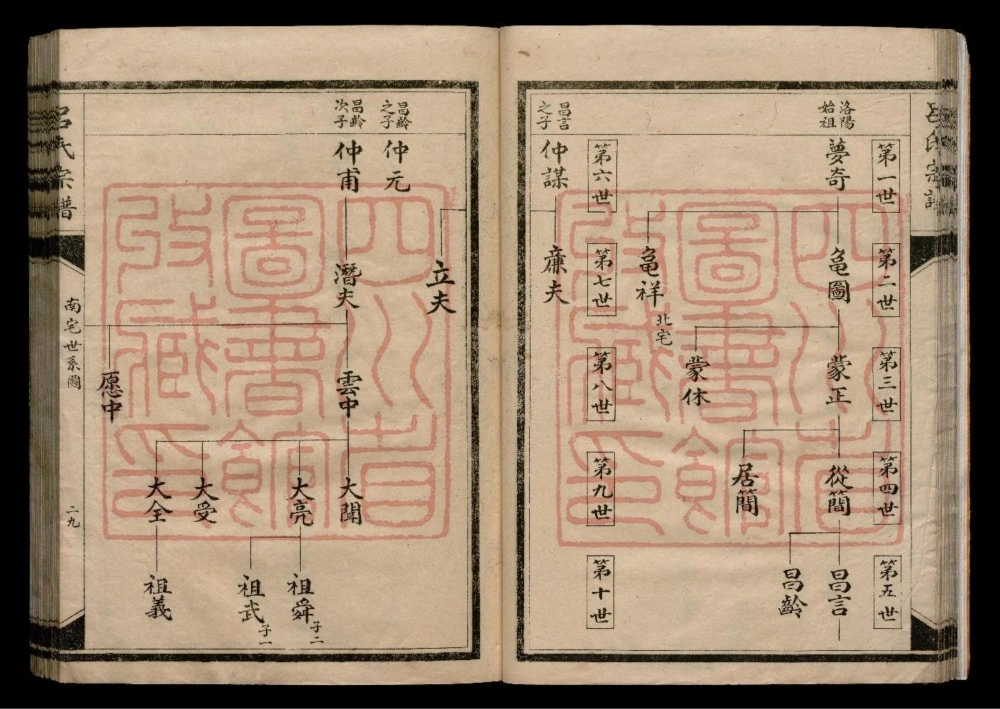 呂氏宗譜
第一世
第二世
第三世
第四世
第五世
洛陽
始祖
夢奇
黾圖
蒙正
從簡
昌言
昌齡
居簡
蒙休
黾祥
北宅
第六世
第七世
第八世
第九世
第十世
昌言
之子
仲謀
廉夫
立夫
昌齡
之子
仲元
昌齡
次子
仲甫
潛夫
雲中
大聞
大亮
祖舜
子二
祖武
子一
大受
大全
祖義
愿中
呂氏宗譜
南宅世系圖
二九
四川省
圖書館
收藏印
四川省
圖書館
收藏印